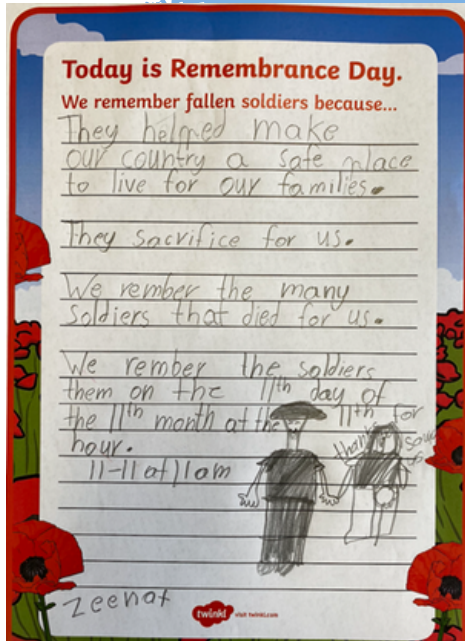 Today is Remembrance Day.
We remember fallen soldiers because...
They helped make
our country a safe place
to live for our families.
They sacrifice for us.
We rember the many
soldiers that died for us.
We rember the soldiers
them on the 11th day of
the 11th month at the 11th for
hour.
11-11 at 11am
thanks
us
Zeenat
twinkl visit twinkl.com